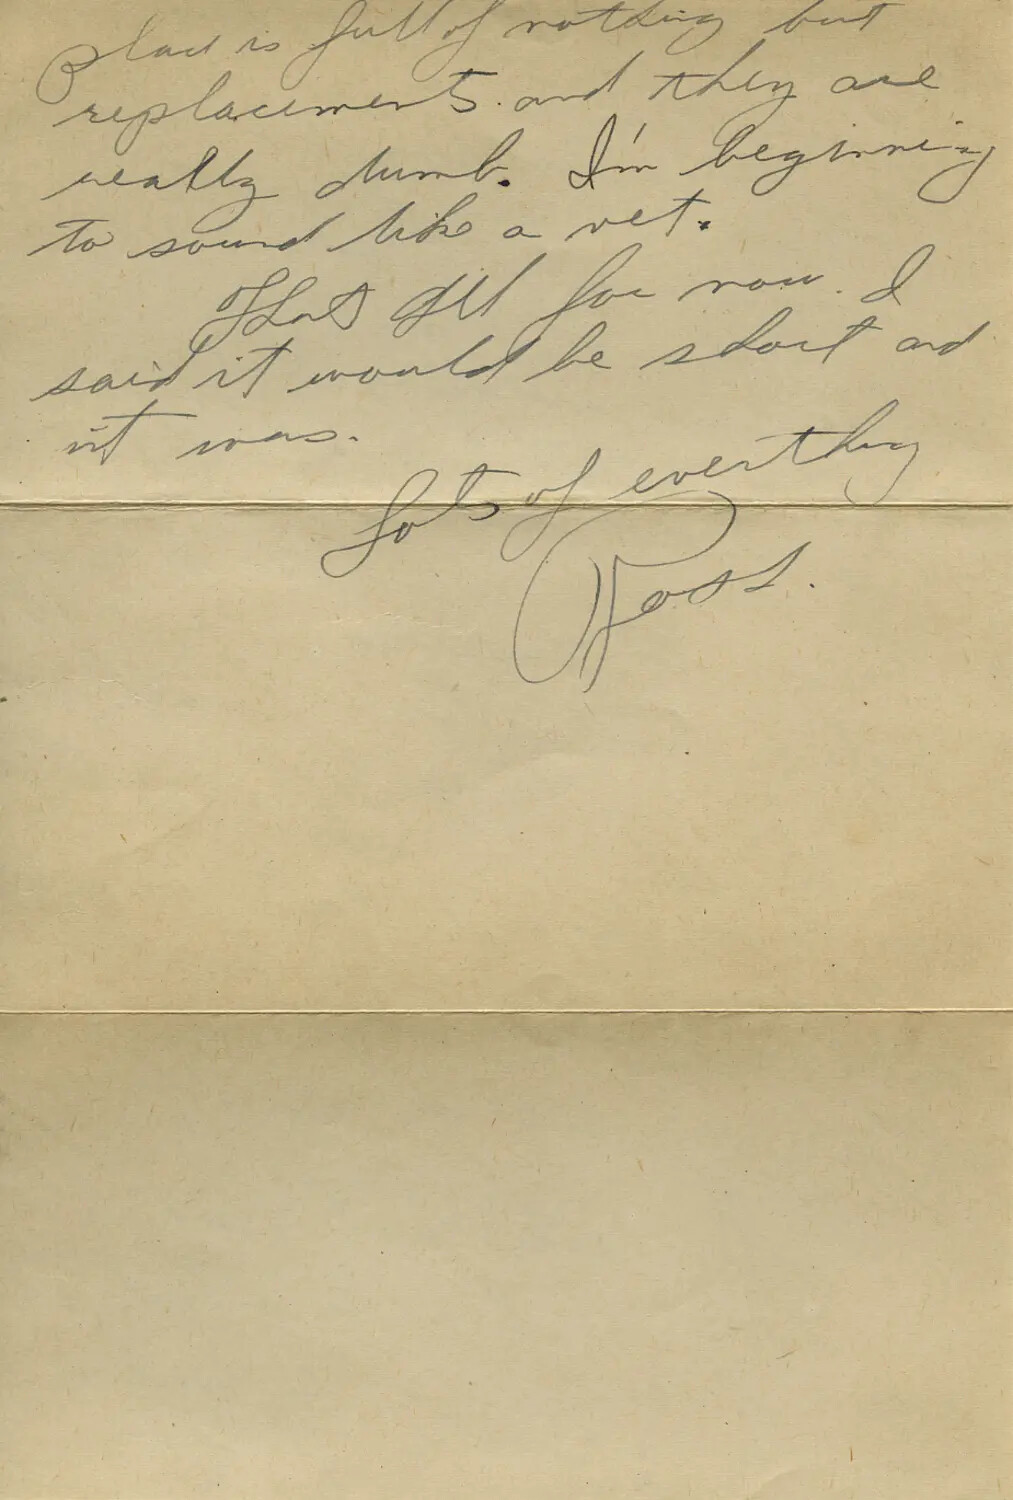 place is full of nothing but
replacements and they are
really dumb. I'm beginning
to sound like a vet.
Thats all for now. I
said it would be short and
it was.
Lots of everthing
Ross.